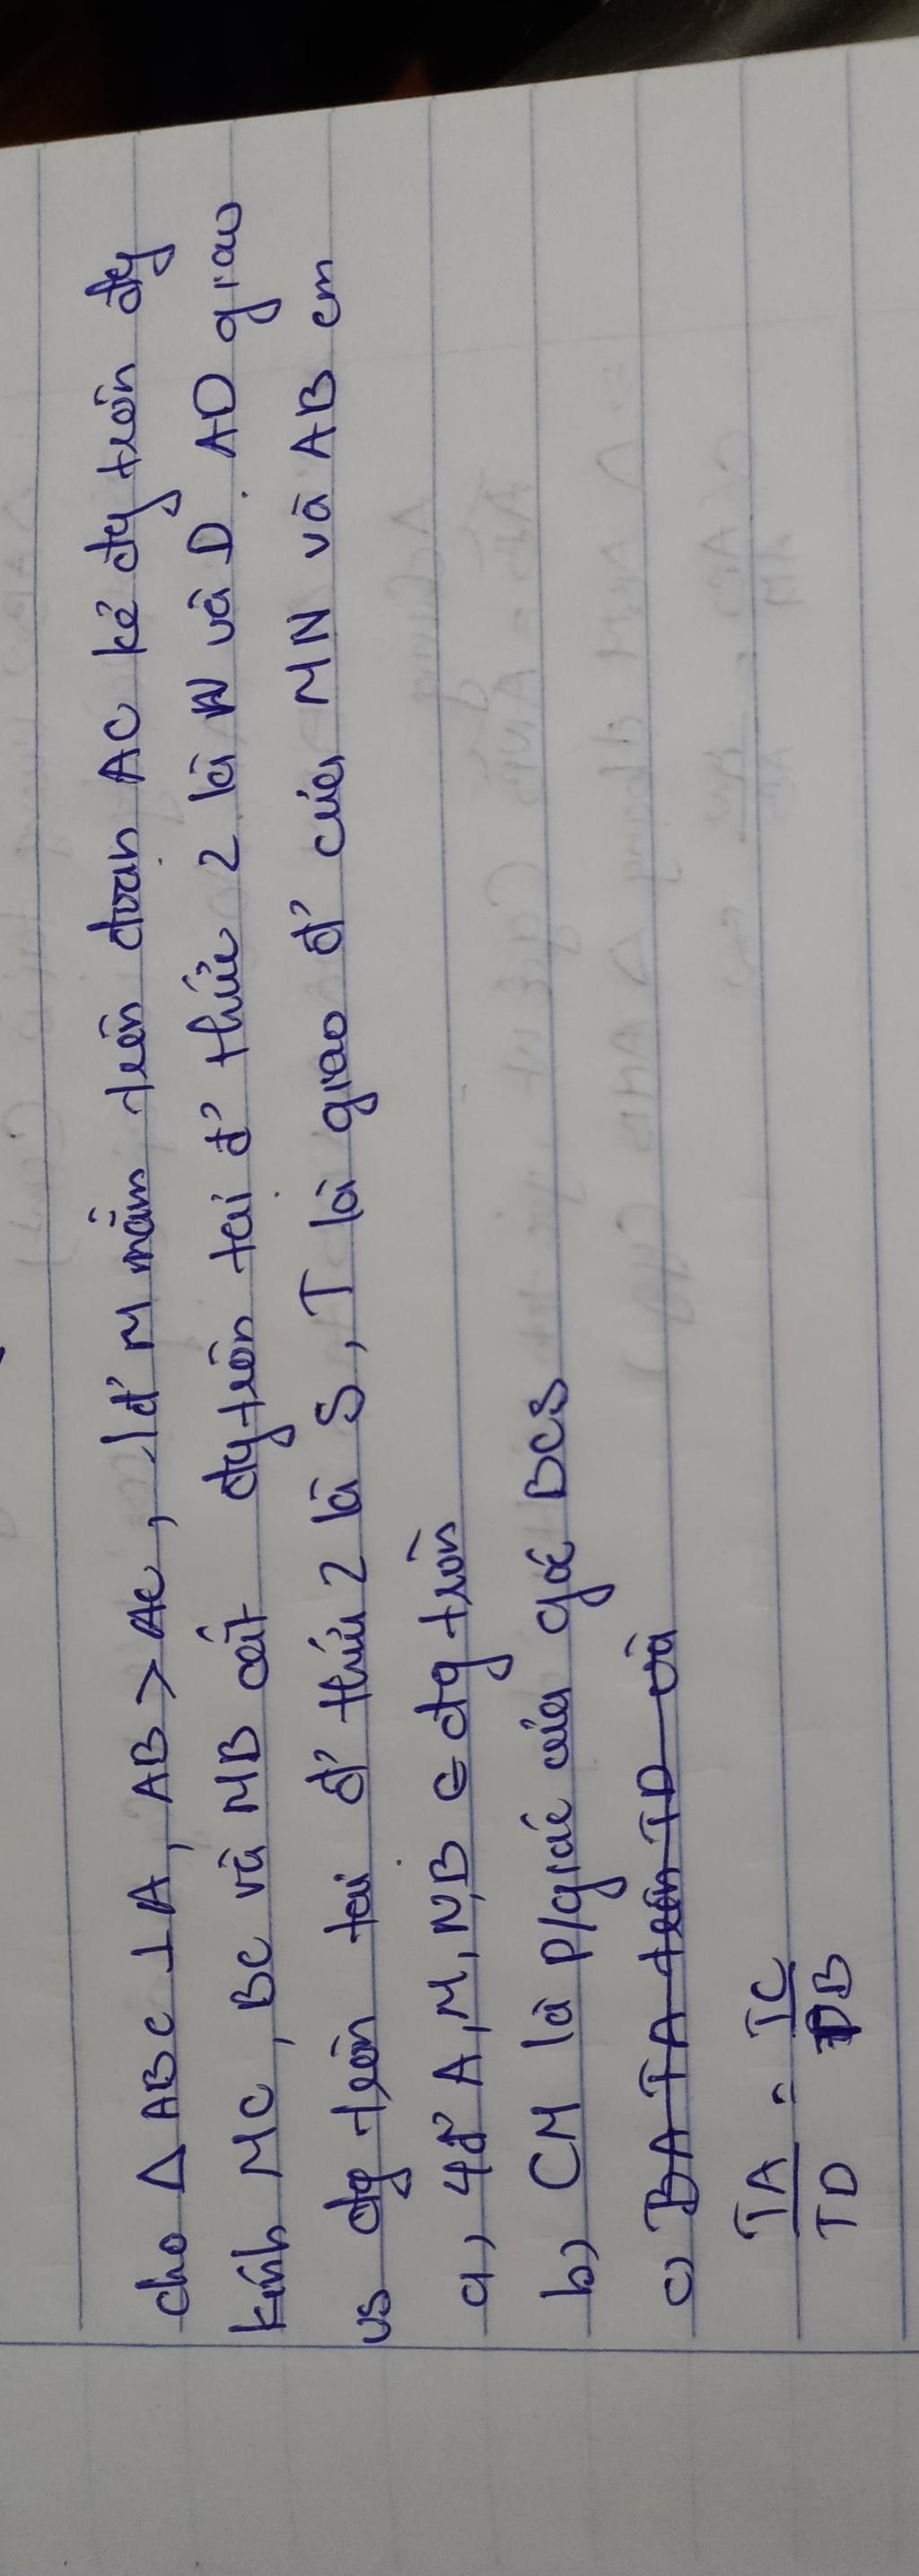 cho Δ ABC ⊥ A, AB > AC, 1 đ' M nằm trên đoạn AC kẻ đg tròn đg
kính MC, BC và MB cắt đg tròn tại đ' thứ 2 là N và D. AD giao
vs đg tròn tại đ' thứ 2 là S, T là giao đ' của MN và AB cm
a, 4đ' A, M, N, B ∈ đg tròn
b) CM là p/giác của góc BCS
c) BA TA trên TD và
TA/TD = TC/TB